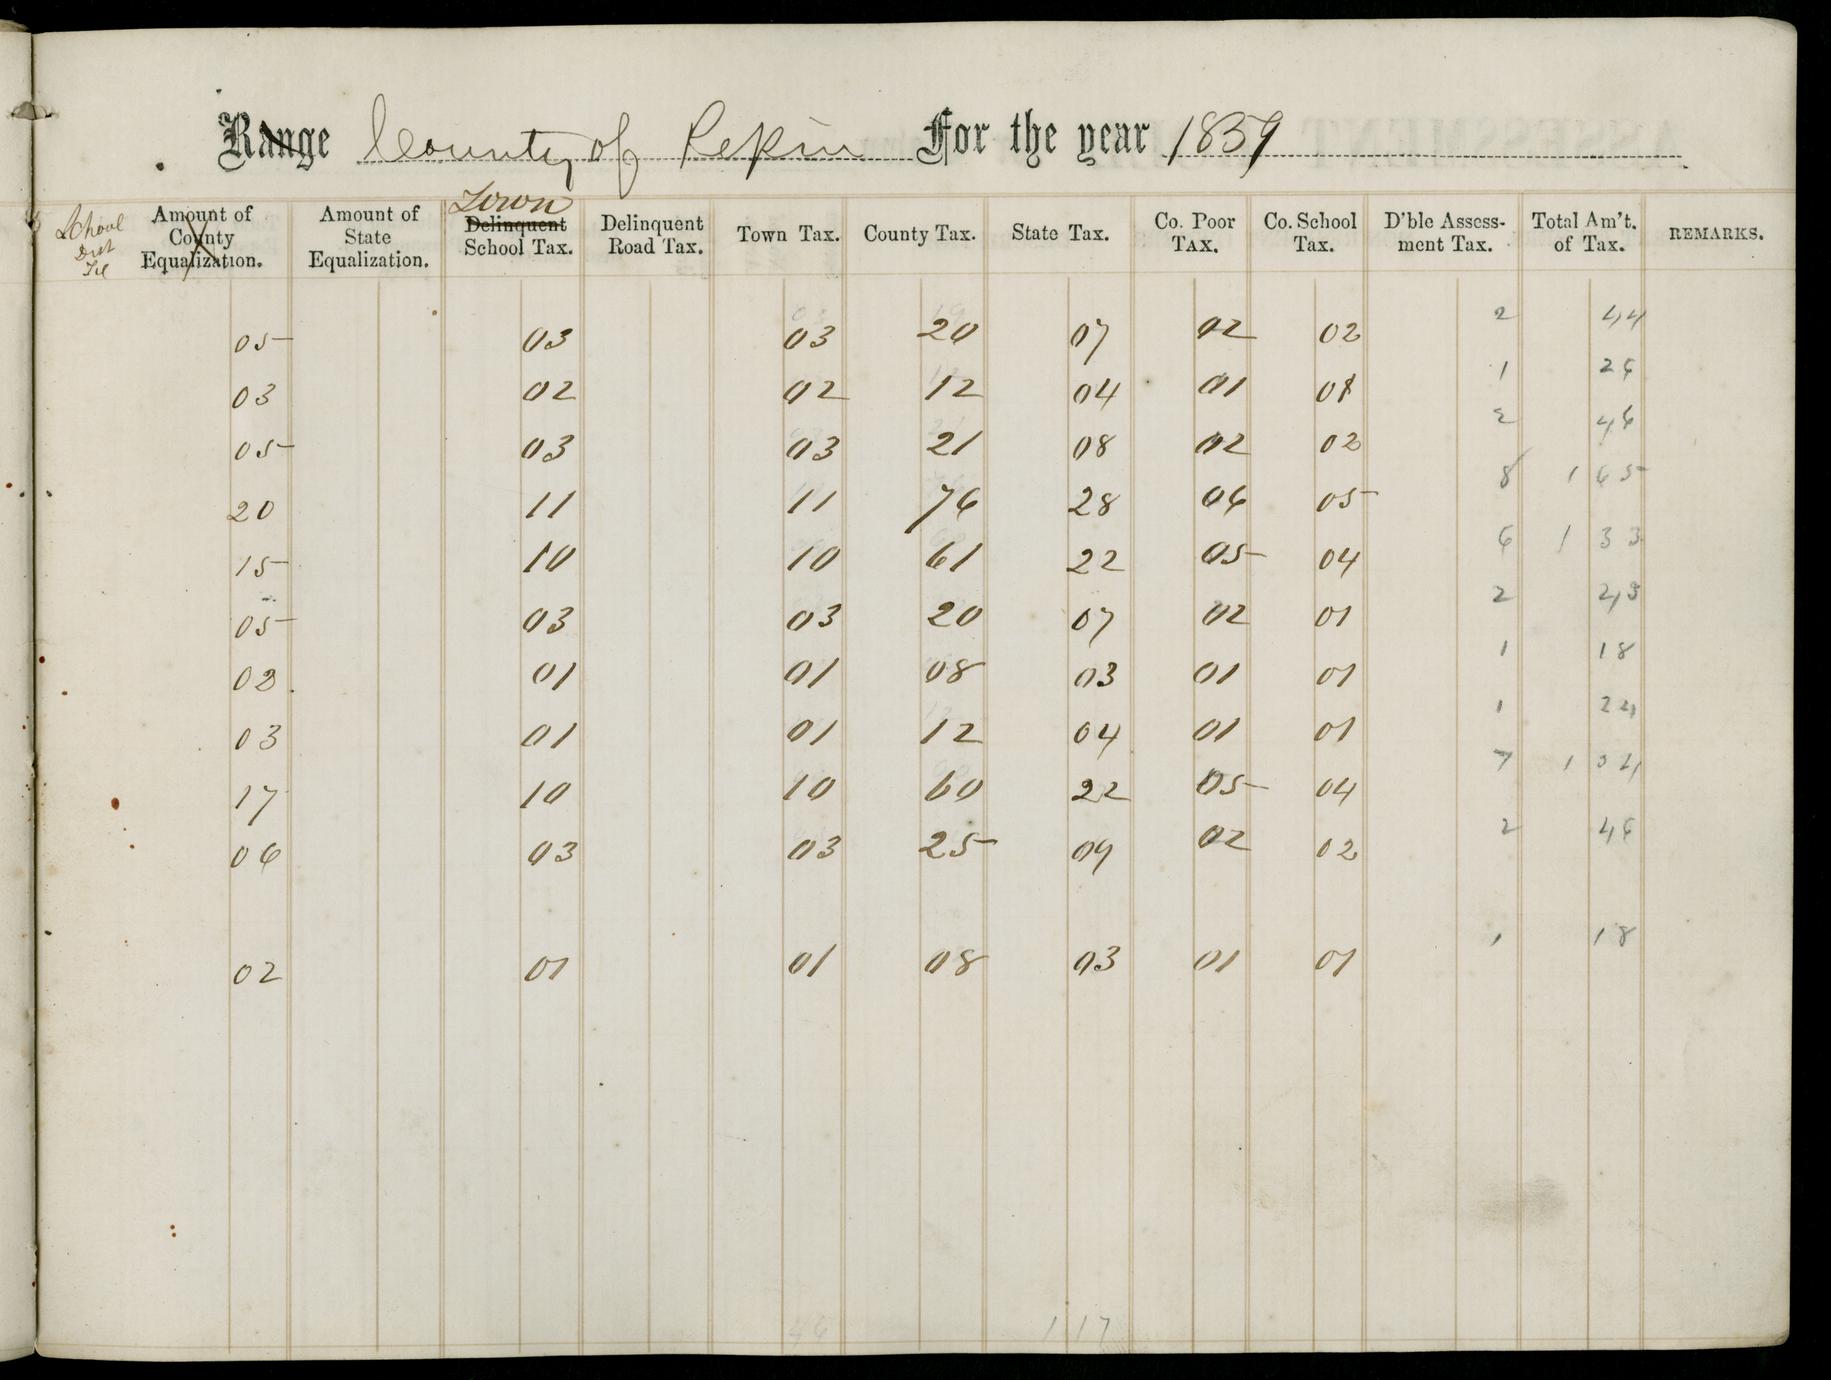 Range County of Pepin For the year 1859
School Dist Amount of County Equalization. Amount of State Equalization. Town Delinquent School Tax. Delinquent Road Tax. Town Tax. County Tax. State Tax. Co. Poor Tax. Co. School Tax. D'ble Assess-ment Tax. Total Am't. of Tax. REMARKS.
05 03 03 20 07 02 02 2 44
03 02 02 12 04 01 01 1 26
05 03 03 21 08 02 02 2 46
20 11 11 76 28 06 05 8 1 65
15 10 10 61 22 05 04 6 1 33
05 03 03 20 07 02 01 2 43
02 01 01 08 03 01 01 1 18
03 01 01 12 04 01 01 1 24
17 10 10 60 22 05 04 7 1 34
06 03 03 25 09 02 02 2 46
02 01 01 08 03 01 01 1 18
46 1 17